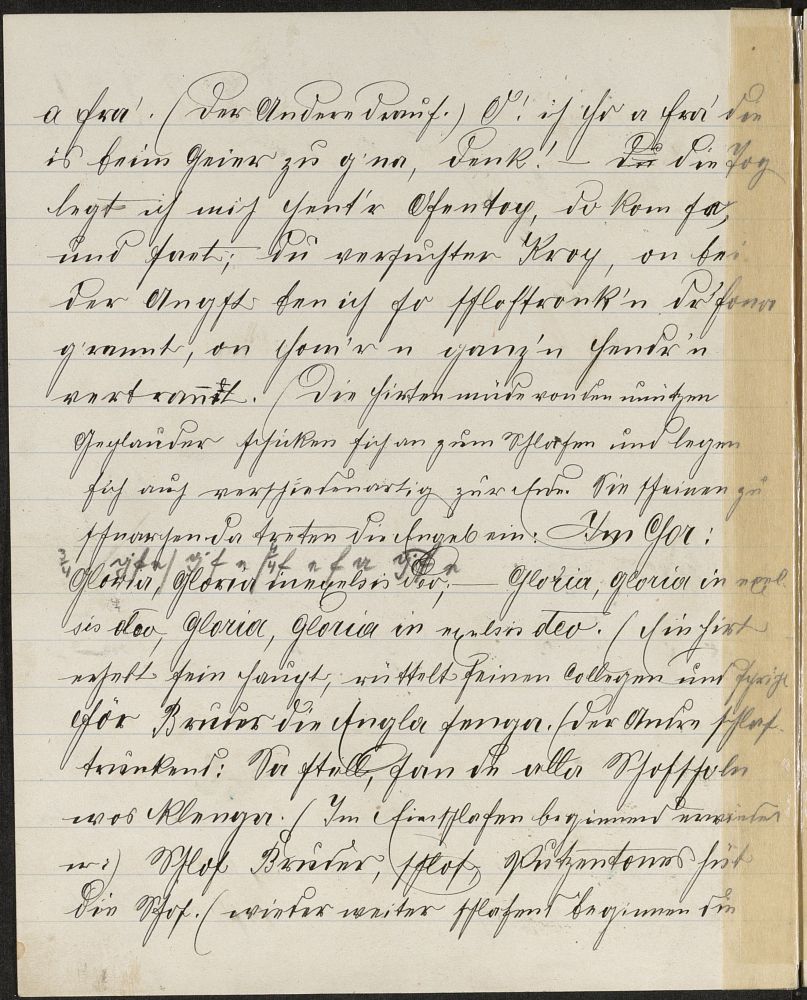 a fra'. (Der Andere drauf.) O! i ho a fra' die
is beim Geier zu g'na, denk! – Du die Tog
legt ich mich hent'r Ofentop, do kom sa,
und saet; du verfuchter Krop, on bei
der Angst ben ich so schloftronk'n dr'fona
g'rannt, on hom'r n ganz'n hendr'n
verbrannt. (Die Hirten müde von den unützen
Geplauder schicken sich an zum Schlafen und legen
sich auch verschiedenartig zur Erde. Sie scheinen zu
schnarchen da treten die Engel ein: Im Chor:
Gloria, Gloria in excelsis deo, – Gloria, gloria in exel-
sis deo, Gloria, Gloria in exelsis deo. (Ein Hirt
erhebt sein Haupt, rüttelt seinen Collegen und spricht
hör Bruder die Engla senga. (Der Andre schlaf-
trunkend: Sa stell, san de alla Schofscheln
wos klenga. (Im Einschlafen beginnend erwiedert
er:) Schlof Bruder, schlof, hüt
die Schof. (wieder weiter schlafend beginnen die